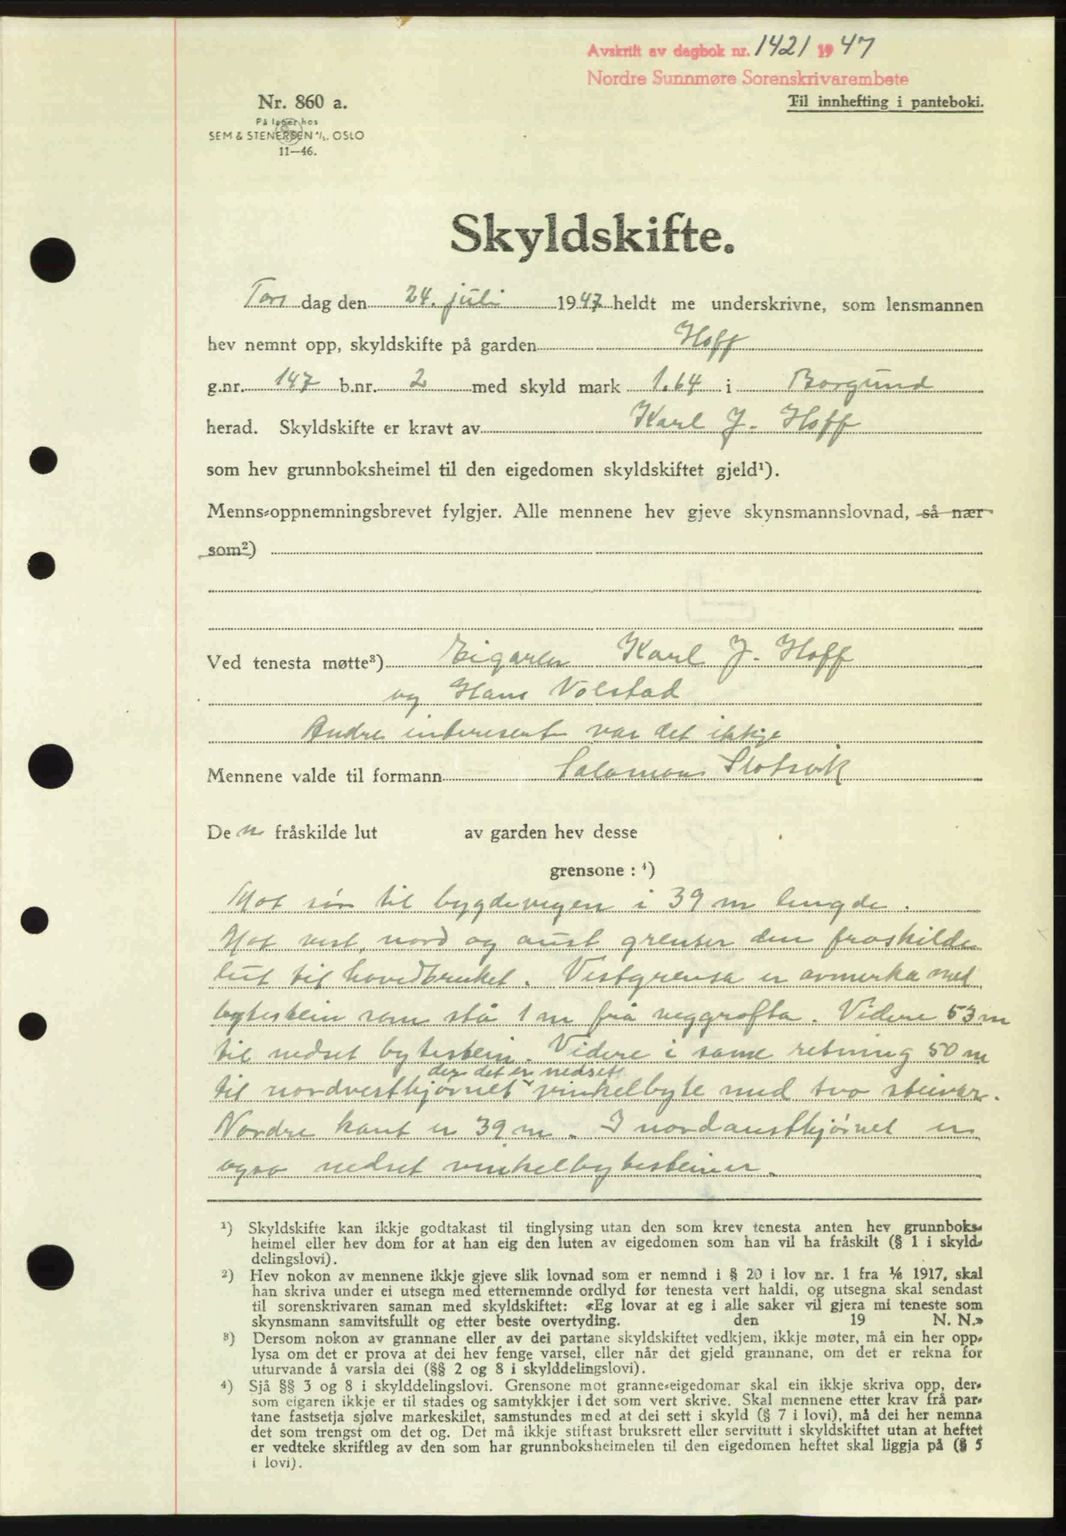 Avskrift av dagbok nr. 1421 1947
Nordre Sunnmøre Sorenskrivarembete
Til innhefting i panteboki.
Nr. 860 a.
På lager hos
SEM & STENERSEN A/S. OSLO
11—46.
Skyldskifte.
Tors dag den 24. juli 1947 heldt me underskrivne, som lensmannen
hev nemnt opp, skyldskifte på garden Hoff
g.nr. 147 b.nr. 2 med skyld mark 1.64 i Borgund
herad. Skyldskifte er kravt av Karl J. Hoff
som hev grunnboksheimel til den eigedomen skyldskiftet gjeld¹).
Menns-oppnemningsbrevet fylgjer. Alle mennene hev gjeve skynsmannslovnad, så nær
som²)
Ved tenesta møtte³) Eigaren Karl J. Hoff
og Hans Volstad
Andre interesent var det ikkje
Mennene valde til formann Salomon Slotsvik
De n fråskilde lut av garden hev desse
grensone : ⁴)
Mot sør til bygdevegen i 39 m lengde.
Mot vest, nord og aust grenser den fraskilde
lut til hovedbruket. Vestgrensa er avmerka med
bytestein som stå 1 m frå veggrøfta. Videre 53 m
til nedset bytestein. Videre i same retning 50 m
der det er nedsett
til nordvesthjørnet vinkelbyte med tvo steinar.
Nordre kant er 39 m. I nordausthjørnet er
også nedset vinkelbytesteiner.
¹) Skyldskifte kan ikkje godtakast til tinglysing utan den som krev tenesta anten hev grunnboks-
heimel eller hev dom for at han eig den luten av eigedomen som han vil ha fråskilt (§ 1 i skyld-
delingslovi).
²) Hev nokon av mennene ikkje gjeve slik lovnad som er nemnd i § 20 i lov nr. 1 fra ⅙ 1917, skal
han skriva under ei utsegn med etternemnde ordlyd før tenesta vert haldi, og utsegna skal sendast
til sorenskrivaren saman med skyldskiftet: «Eg lovar at eg i alle saker vil gjera mi teneste som
skynsmann samvitsfullt og etter beste overtyding. den 19 N. N.»
³) Dersom nokon av grannane eller av dei partane skyldskiftet vedkjem, ikkje møter, må ein her opp-
lysa om det er prova at dei hev fenge varsel, eller når det gjeld grannane, om det er rekna for
uturvande å varsla dei (§§ 2 og 8 i skylddelingslovi).
⁴) Sjå §§ 3 og 8 i skylddelingslovi. Grensone mot granne-eigedomar skal ein ikkje skriva opp, der-
som eigaren ikkje er til stades og samtykkjer i det som vert skrive. Skal mennene etter krav frå par-
tane fastsetja sjølve markeskilet, samstundes med at dei sett i skyld (§ 7 i lovi), må dei her nemna
det som trengst om det og. Det må ikkje stiftast bruksrett eller servitutt i skyldskiftet utan at heftet
er vedteke skriftleg av den som har grunnboksheimelen til den eigedomen heftet skal liggja på (§ 5
i lovi).